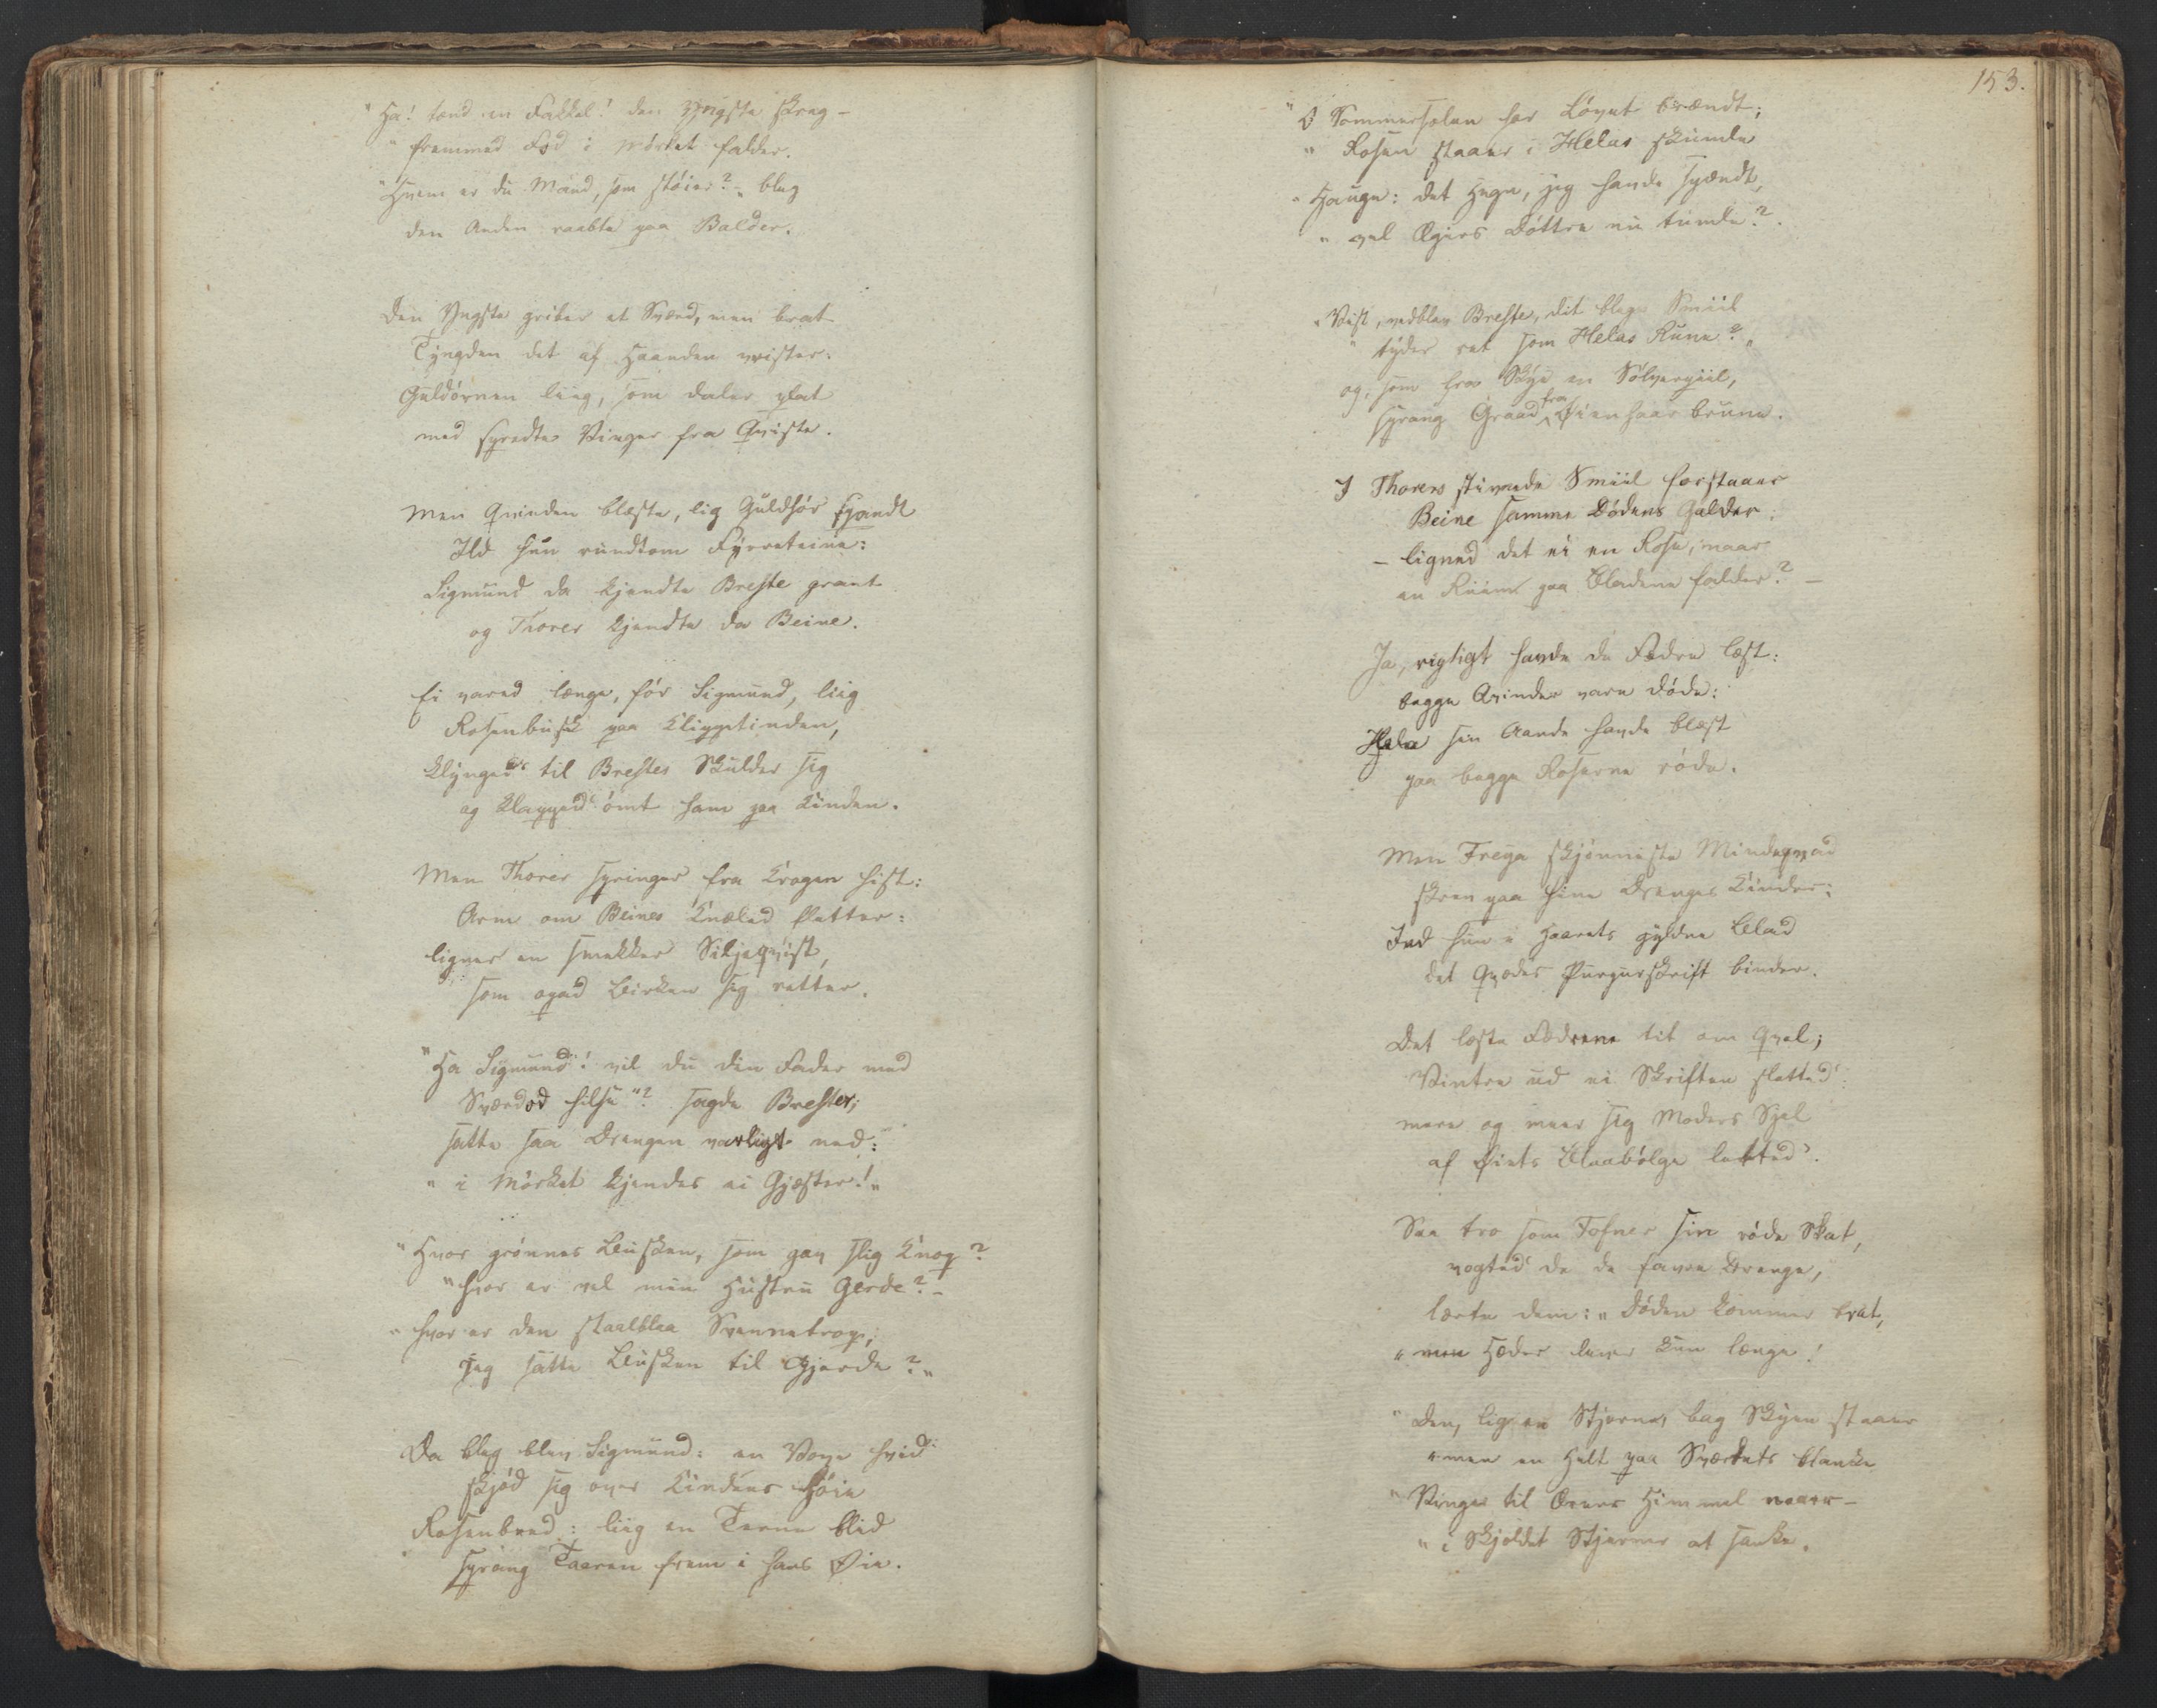 "Ha! tænd en Fakkel! den yngste skreg –
"fremmed Fod i Mörket falder.
"Hvem er du Mand, som støier?" bleg
den Anden raabte paa Balder.
Den Yngste griber et Sværd, men brat
Tyngden det af Haanden vrister:
Guldörnen liig, som daler plat
med spredte Vinger fra Qviste.
Men Qvinden blæste, lig Guldhör spændt
Ild hun rundtom Fyrreteine:
Sigmund da kjendte Breste grant
og Thorer kjendte da Beine.
Ei vared længe, för Sigmund, liig
Rosenbusk paa Klippetinden,
klynged' til Brestes Skulder sig
og klapped' ömt ham paa Kinden.
Men Thorer springer fra Krogen hist:
Arm om Beines Knæled fletter:
ligner en smekker Siljeqvist,
som opad Birken sig retter.
"Ha Sigmund! vil du din Fader med
Sværdod hilse"? sagde Brester;
satte saa Drengen varligt ned:
"i Mörket kjendes ei Gjæster!"
"Hvor grönnes Busken, som gav slig Knop?
"hvor er vel min Hustru Gerde? –
"hvor er den staalblaa Svennetrop,
jeg satte Busken til Gjerde?"
Da bleg blev Sigmund: en Vove hvid
skjöd sig over Kindens höie
Rosenbred: liig en Terne blid
sprang Taaren frem i hans Øie.
153.
"O Sommersolen har Lövet brændt;
"Rosen staaer i Helas skumle
"Hauge: det Hegn, jeg havde spændt,
"vel Ægirs Döttre nu tumle?
"Vist, vedblev Breste, dit blege Smiil
"tyder ret som Helas Rune?"
og, som fra Skye en Sölverpiil,
sprang Graad fra Øienhaar brune.
I Thorers stivnede Smiil forstaaer
Beine samme Dödens Galder:
– ligned det ei en Rose, naar
en Riim paa Bladene falder? –
Ja, rigtigt havde de Fædre læst:
begge Qvinder vare döde:
Hela sin Aande havde blæst
paa begge Roserne röde.
Men Freya skjönneste Mindeqvad
skrev paa hine Drenges Kinder:
Ind hun i Haarets gyldne Blad
det Qvædes Purpurskrift binder.
Det læste Fædrene tit om Qvel;
Vintre ud ei Skriften sletted':
mere og meer sig Moders Sjel
af Øiets Blaabölge letted'.
Saa tro som Fofner sin röde Skat,
vogted' de de favre Drenge,
lærte dem: "Döden kommer brat,
"men Hæder lever kun længe!
"Den, lig en Stjerne, bag Skyen staaer
"men en Helt paa Sværdets blanke
"Vinger til Ærens Himmel naaer –
"i Skjoldet Stjerner at sanke.